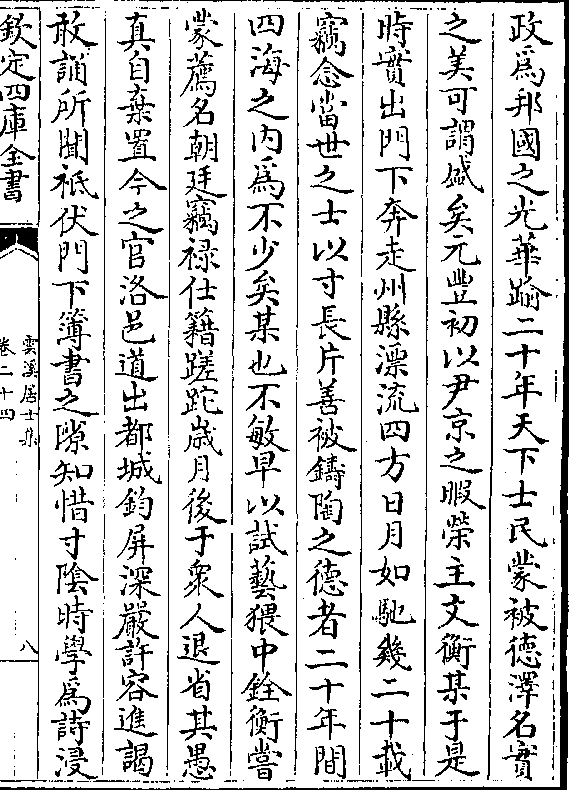 政爲邦國之光華踰二十年天下士民蒙被德澤名實
之美可謂盛矣元豐初以尹京之暇榮主文衡某于是
時實出門下奔走州縣漂流四方日月如馳幾二十載
竊念當世之士以寸長片善被鑄陶之德者二十年間
四海之内爲不少矣某也不敏早以試藝猥中銓衡嘗
蒙薦名朝廷竊禄仕籍蹉跎歲月後于衆人退省其愚
真自棄置今之官洛邑道出都城鈞屏深嚴許容進謁
敢誦所聞祇伏門下簿書之隙知惜寸陰時學爲詩浸
欽定四庫全書
雲溪居士集
卷二十四
八